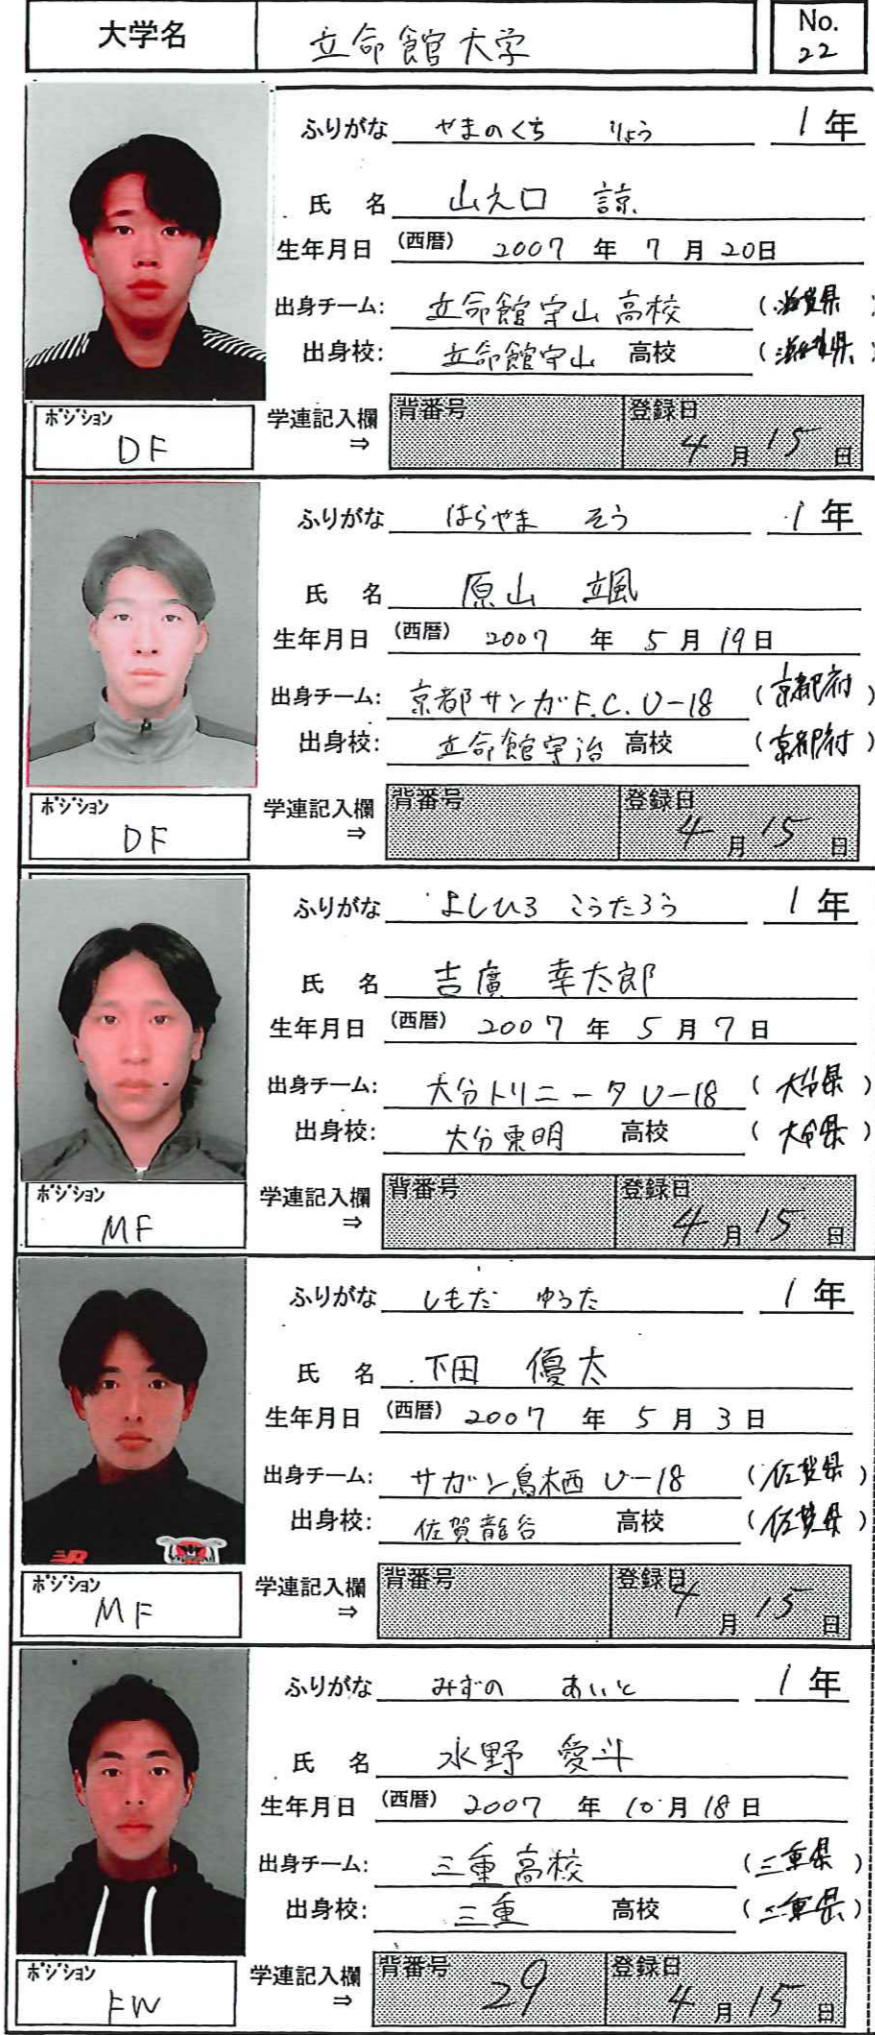 大学名 立命館大学 No. 22
ふりがな やまのくち りょう 1年
氏名 山之口 諒
生年月日 (西暦) 2007年7月20日
出身チーム: 立命館守山高校 (滋賀県)
出身校: 立命館守山 高校 (滋賀県)
ポジション DF 学連記入欄⇒ 背番号 登録日 4月15日
ふりがな はらやま そう 1年
氏名 原山 颯
生年月日 (西暦) 2007年5月19日
出身チーム: 京都サンガF.C.U-18 (京都府)
出身校: 立命館宇治 高校 (京都府)
ポジション DF 学連記入欄⇒ 背番号 登録日 4月15日
ふりがな よしひろ こうたろう 1年
氏名 吉廣 幸太郎
生年月日 (西暦) 2007年5月7日
出身チーム: 大分トリニータU-18 (大分県)
出身校: 大分東明 高校 (大分県)
ポジション MF 学連記入欄⇒ 背番号 登録日 4月15日
ふりがな しもだ ゆうた 1年
氏名 下田 優太
生年月日 (西暦) 2007年5月3日
出身チーム: サガン鳥栖U-18 (佐賀県)
出身校: 佐賀龍谷 高校 (佐賀県)
ポジション MF 学連記入欄⇒ 背番号 登録日 4月15日
ふりがな みずの あいと 1年
氏名 水野 愛斗
生年月日 (西暦) 2007年10月18日
出身チーム: 三重高校 (三重県)
出身校: 三重 高校 (三重県)
ポジション FW 学連記入欄⇒ 背番号 29 登録日 4月15日